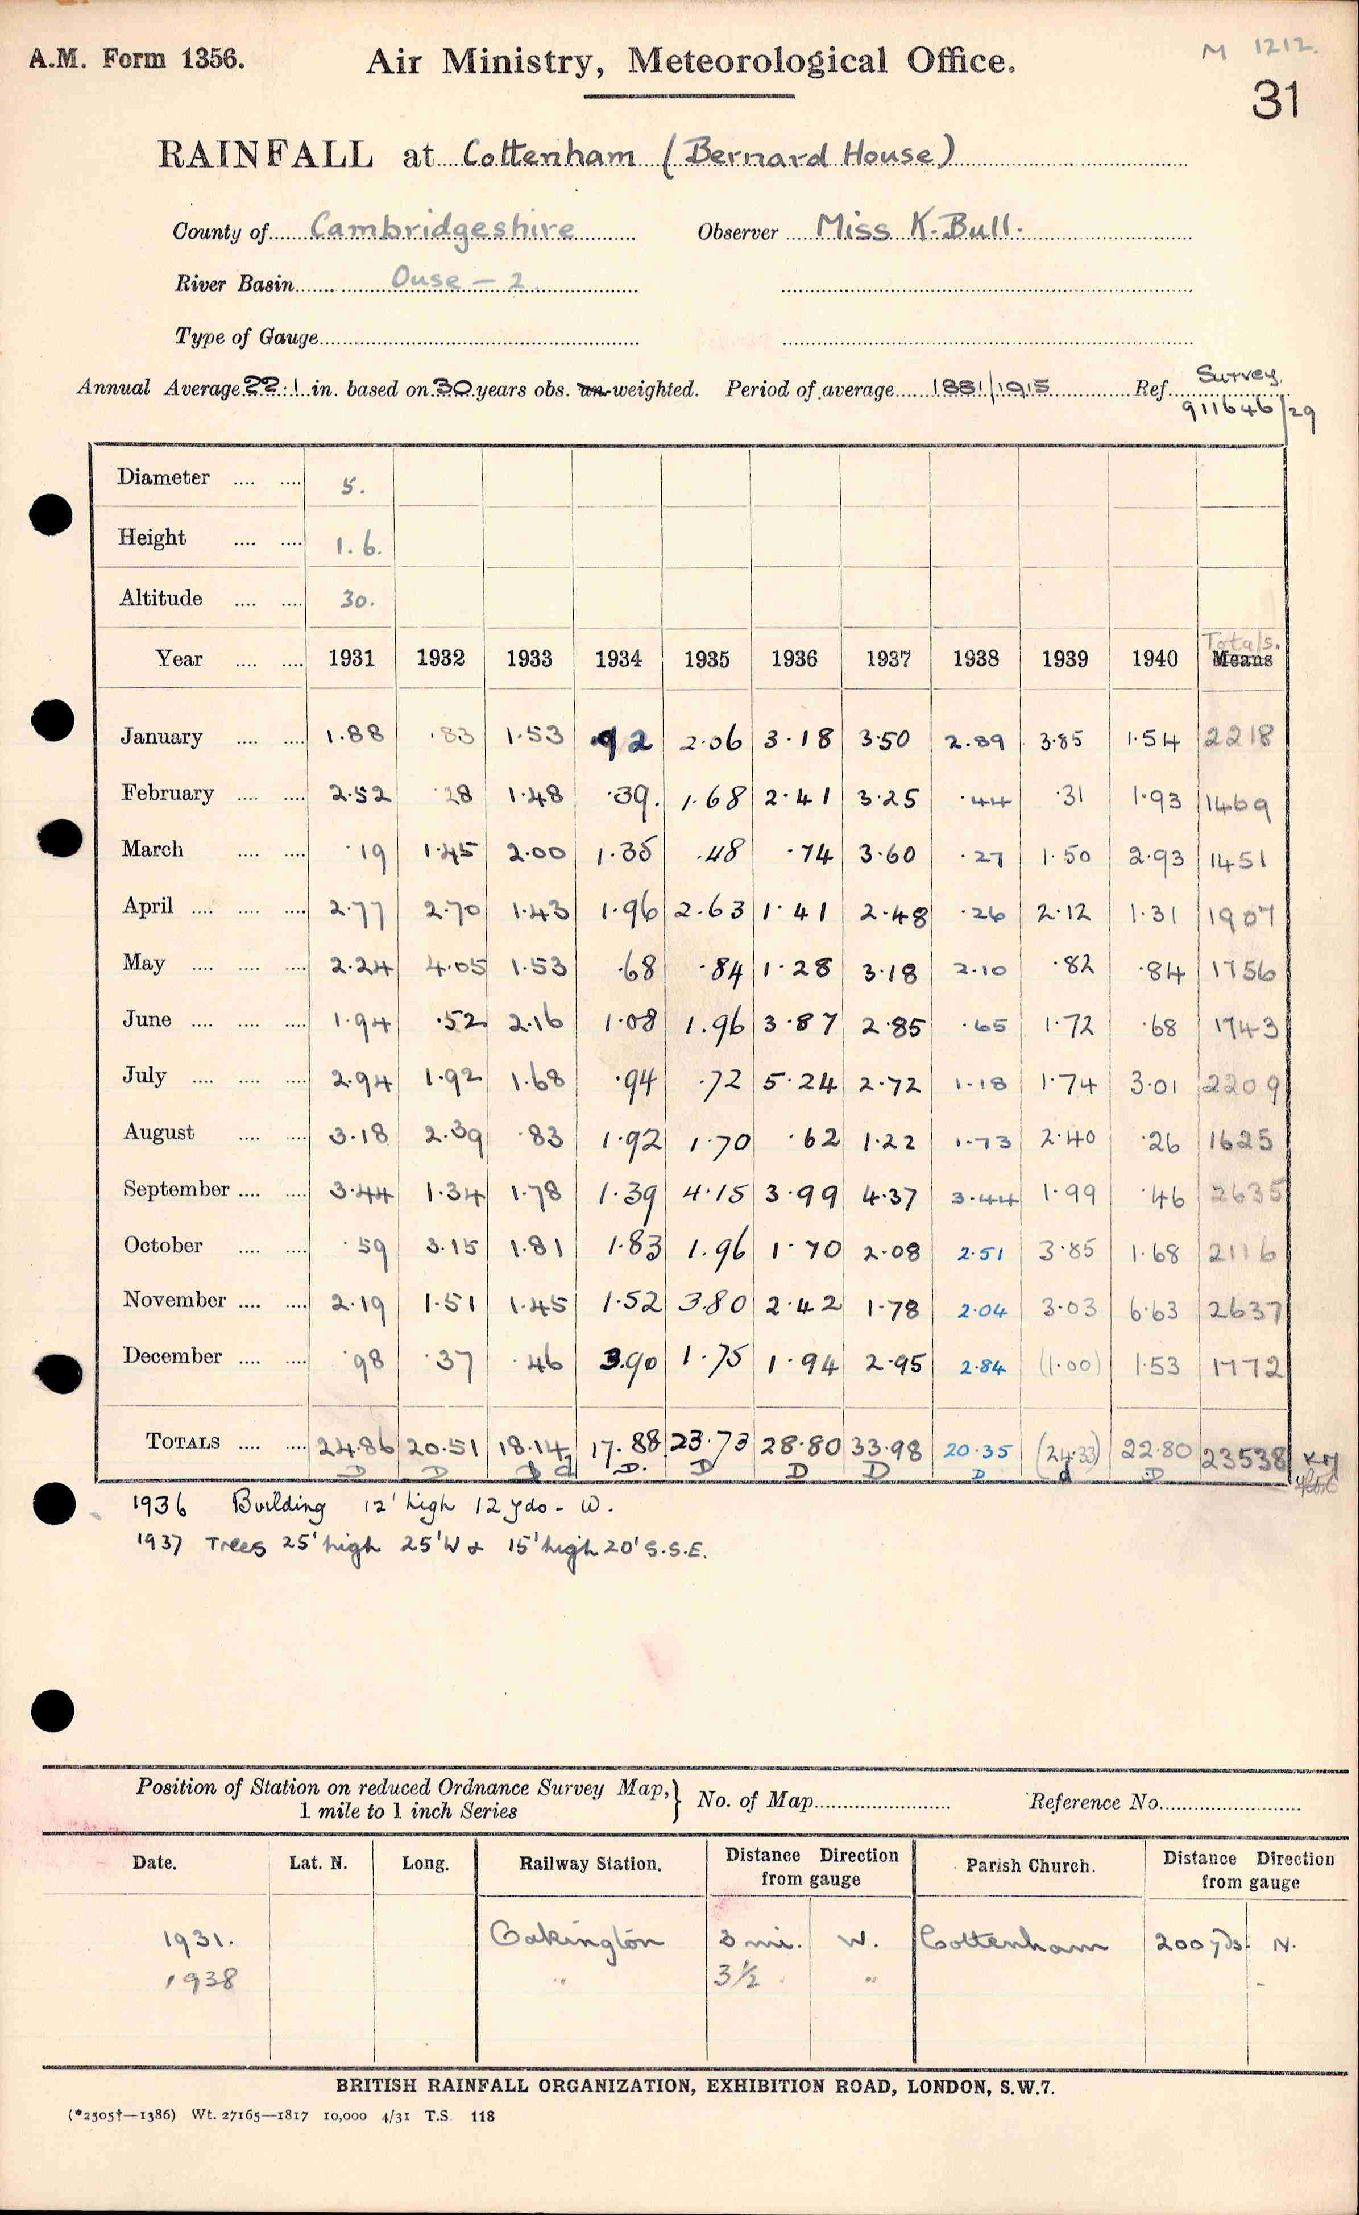 A.M. Form 1356.
Air Ministry, Meteorological Office.
M 1212.
31
RAINFALL at Cottenham (Bernard House)
County of Cambridgeshire Observer Miss K. Bull.
River Basin Ouse – 2
Type of Gauge
Annual Average 22.1 in. based on 30 years obs. un-weighted. Period of average 1881/1915 Ref. Survey. 911646/29
Diameter .... .... 5.
Height .... .... 1.6.
Altitude .... .... 30.
Totals.
Year .... .... 1931 1932 1933 1934 1935 1936 1937 1938 1939 1940 Means
January .... .... 1.88 .83 1.53 .92 2.06 3.18 3.50 2.89 3.85 1.54 2218
February .... .... 2.52 .28 1.48 .39. 1.68 2.41 3.25 .44 .31 1.93 1469
March .... .... .19 1.45 2.00 1.35 .48 .74 3.60 .27 1.50 2.93 1451
April .... .... .... 2.77 2.70 1.43 1.96 2.63 1.41 2.48 .26 2.12 1.31 1907
May .... .... .... 2.24 4.05 1.53 .68 .84 1.28 3.18 2.10 .82 .84 1756
June .... .... .... 1.94 .52 2.16 1.08 1.96 3.87 2.85 .65 1.72 .68 1743
July .... .... .... 2.94 1.92 1.68 .94 .72 5.24 2.72 1.18 1.74 3.01 2209
August .... .... 3.18 2.39 .83 1.92 1.70 .62 1.22 1.73 2.40 .26 1625
September .... .... 3.44 1.34 1.78 1.39 4.15 3.99 4.37 3.44 1.99 .46 2635
October .... .... .59 3.15 1.81 1.83 1.96 1.70 2.08 2.51 3.85 1.68 2116
November .... .... 2.19 1.51 1.45 1.52 3.80 2.42 1.78 2.04 3.03 6.63 2637
December .... .... .98 .37 .46 3.90 1.75 1.94 2.95 2.84 (1.00) 1.53 1772
TOTALS .... .... 24.86 20.51 18.14 17.88 23.73 28.80 33.98 20.35 (24.33) 22.80 23538
D D d D. D D D D d D
1936 Building 12' high 12 yds - W.
1937 Trees 25' high 25' W & 15' high 20' S.S.E.
Position of Station on reduced Ordnance Survey Map, 1 mile to 1 inch Series } No. of Map Reference No.
Date. Lat. N. Long. Railway Station. Distance Direction from gauge Parish Church. Distance Direction from gauge
1931. Oakington 3 mi. W. Cottenham 200 yds. N.
1938 " 3½ " -
BRITISH RAINFALL ORGANIZATION, EXHIBITION ROAD, LONDON, S.W.7.
(*2505†—1386) Wt. 27165—1817 10,000 4/31 T.S. 118